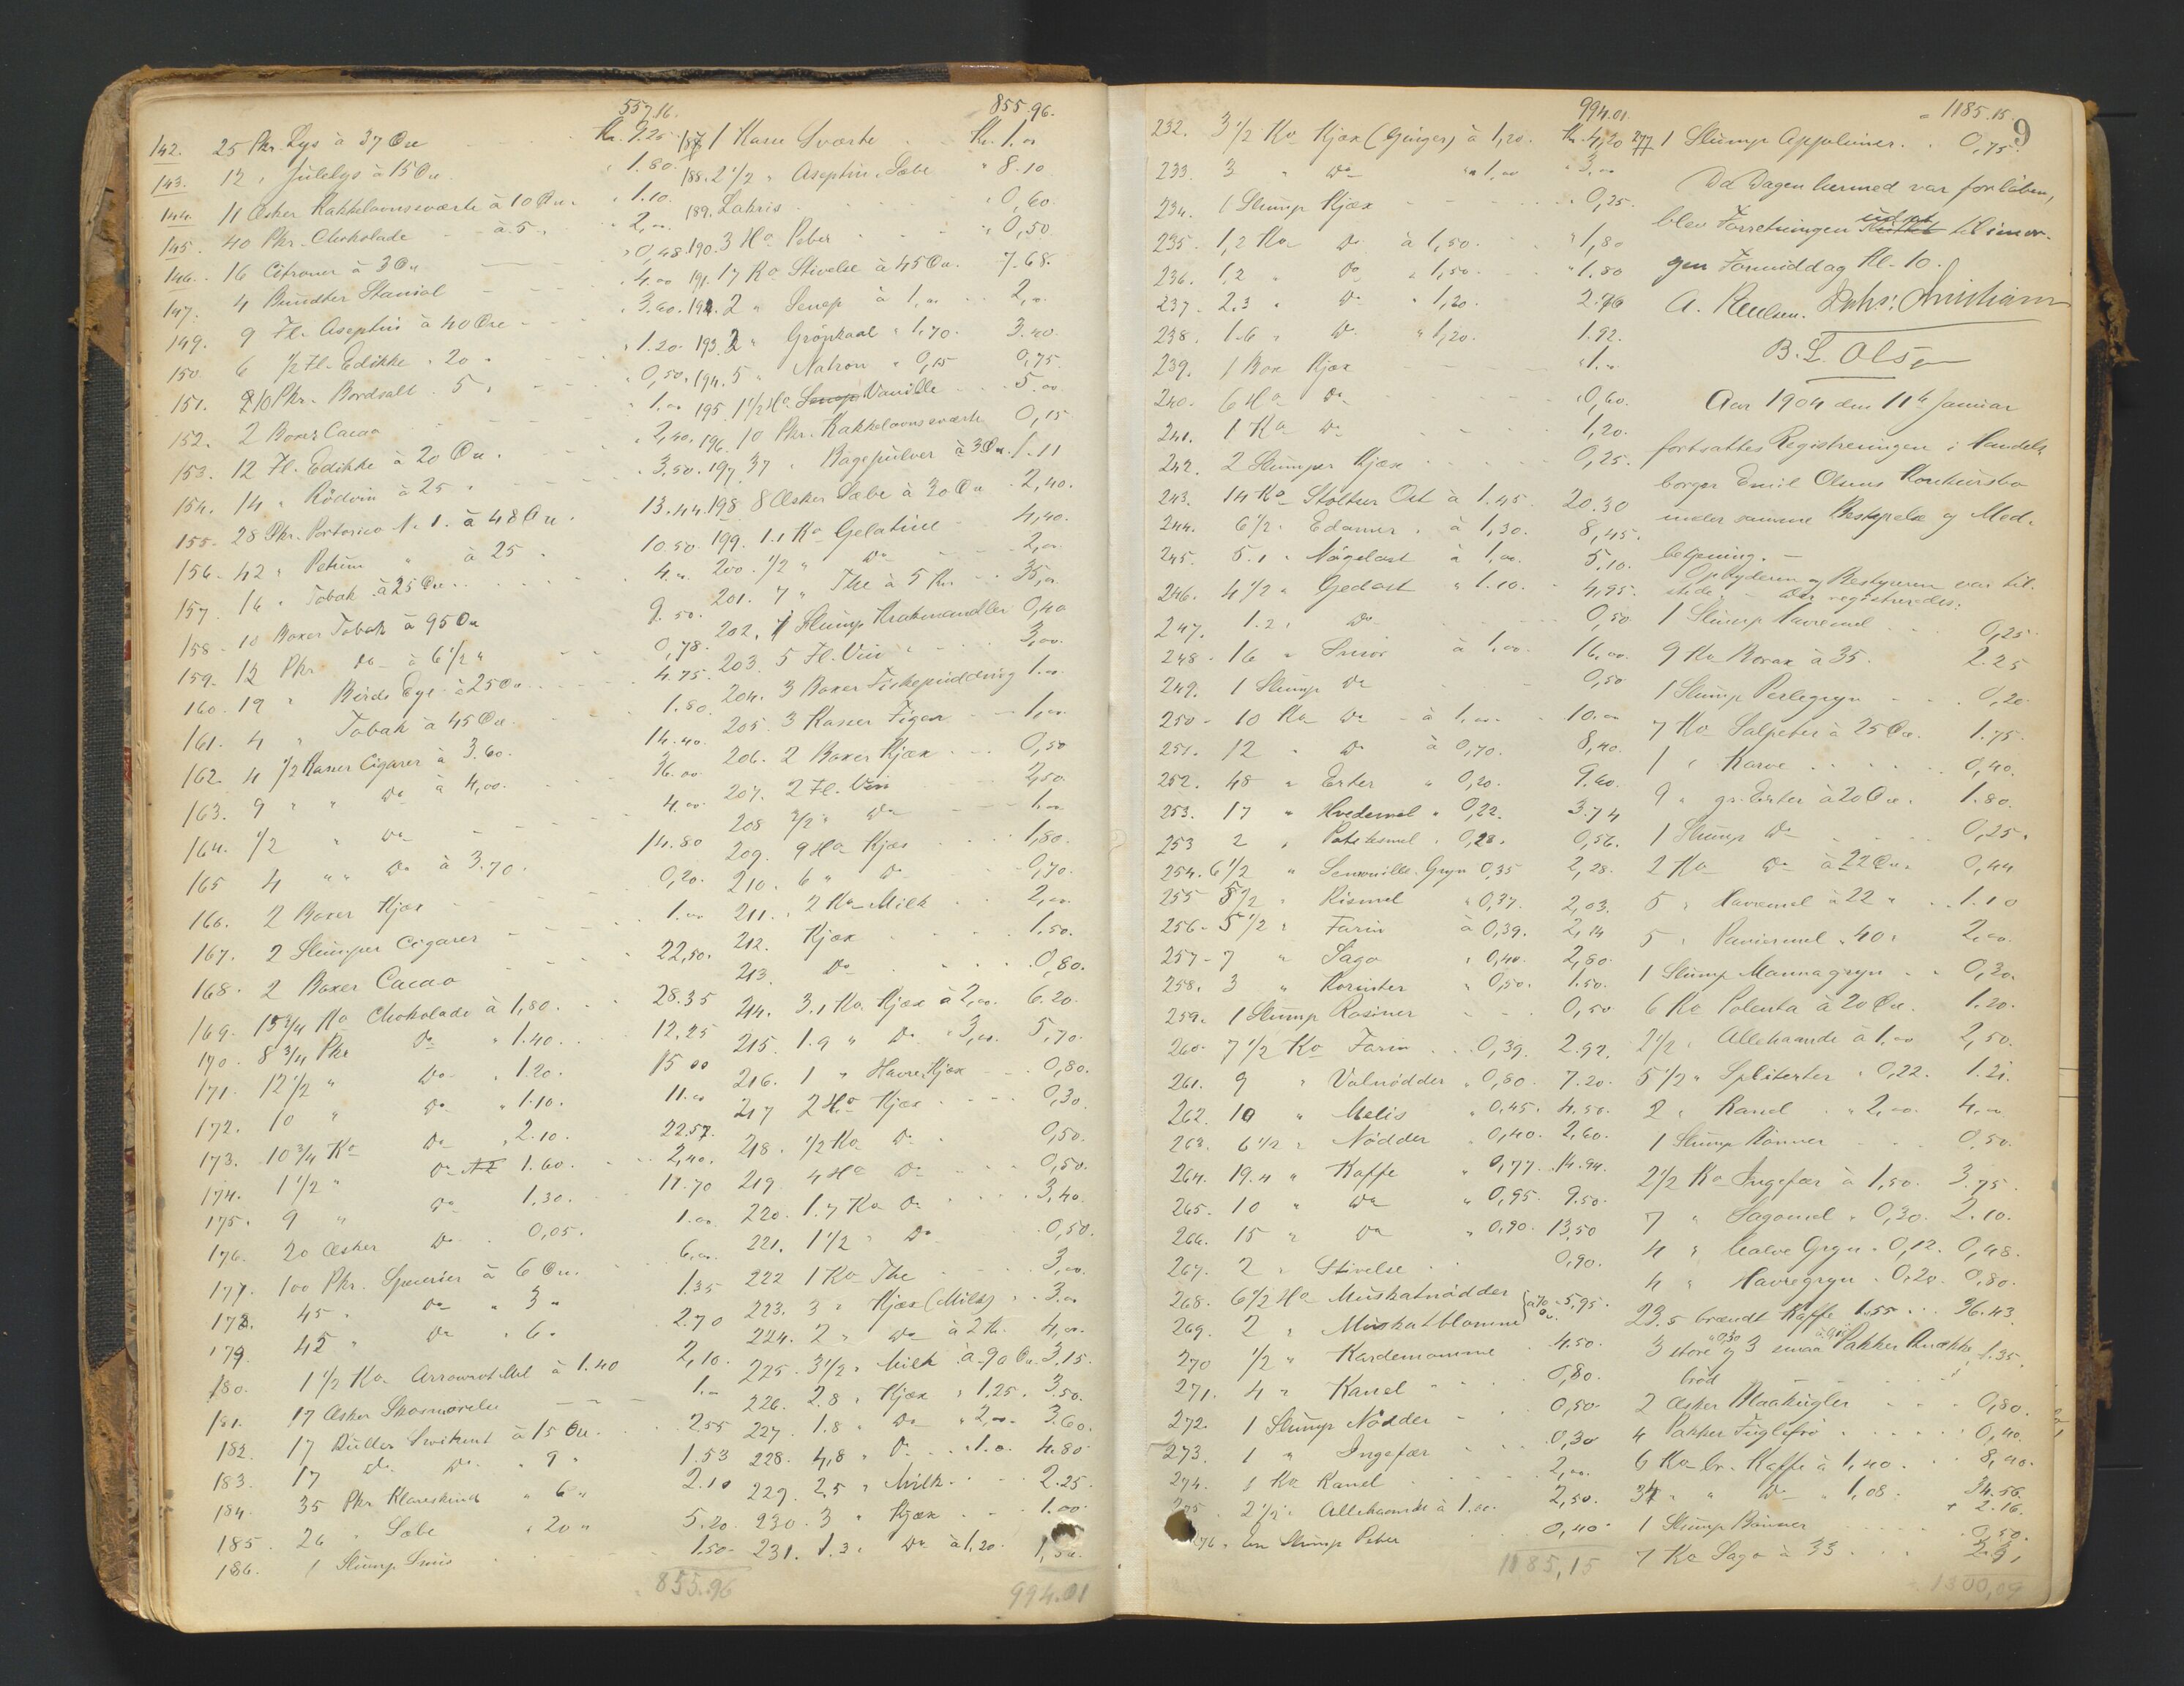 557.16.
142. 25 Pkr. Lys à 37 Øre Kr. 9.25
143. 12 " Julelys à 15 Øre " 1.80.
144. 11 Æsker Kakkelovnsværte à 10 Øre " 1.10.
145. 40 Pkr. Chokolade à 5 " 2,00
146. 16 Citroner à 3 Øre " 0,48
147. 4 Bundter Staniol " 4.00
149. 9 Fl. Aseptin à 40 Øre " 3.60.
150. 6 1/2 Fl. Edikke " 20 " " 1.20
151. 10 Pkr. Bordsalt " 5 " " 0,50
152. 2 Boxer Cacao " 1.00
153. 12 Fl. Edikke à 20 Øre " 2,40
154. 14 " Rödvin à 25 " " 3.50
155. 28 Pkr. Portorico No 1. à 48 Øre 13.44
156. 42 " Petum " à 25 " 10.50
157. 16 " Tobak à 25 Øre 4.00
158. 10 Boxer Tobak à 95 Øre 9.50
159. 12 Pkr. Do à 6 1/2 " 0,78.
160. 19 " Birds Eye à 25 Øre 4.75
161. 4 " Tobak à 45 Øre 1.80
162. 4 1/2 Kasser Cigarer à 3.60. 14.40
163. 9 " " Do à 4,00. 36.00
164. 1/2 " Do 4.00
165 4 " " Do à 3.70. 14.80
166. 2 Boxer Kjæx 0,20.
167. 2 Slumper Cigarer 1.00
168. 2 Boxer Cacao 22,50.
169. 15 3/4 Ko Chokolade à 1,80. 28.35
170. 8 3/4 Pkr Do " 1.40. 12.25
171. 12 1/2 " Do " 1.20. 15 00
172. 10 " Do " 1.10. 11.00
173. 10 3/4 Ko Do " 2.10. 22.57
174. 1 1/2 " Do 1.60. 2,40.
175. 9 " Do 1.30. 11.70
176. 20 Æsker Do 0,05. 1.00
177. 100 Pkr. Specerier à 6 Øre. 6.00
178. 45 " Do " 3 " 1.35
179. 45 " Do " 6 " 2.70
180. 1 1/2 Ko. Arrowrot Mel à 1.40 2,10.
181. 17 Æsker Skosværte 1.00
182. 17 Ruller à 15 Øre. 2.55
183. 17 Do. Do. " 9 " 1.53
184. 35 Pkr " 6 " 2.10
185. 26 " Sæbe " 20 " 5.20
186. 1 Slump 1.50
855.96
855.96.
187 1 Kasse Sværte Kr. 1.00
188. 2 1/2 " Aseptin Sæbe " 8.10
189. Lakris " 0,60.
190. 3 Ho Peber " 0,50
191. 17 Ko Stivelse à 45 Øre. 7.68.
192. 2 " Senep à 1,00 2,00
193. 2 " Gröpkaal " 1,70. 3.40.
194. 5 " Natron " 0,15 0,75
195. 1 1/2 Ho Senep Vanille 5.00
196. 10 Pkr. Kakkelovnsværte 0,15
197 37 " Bagepulver à 3 Øre. 1.11
198 8 Æsker Sæbe à 30 Øre 2,40.
199. 1.1 Ko Gelatine 4,40.
200. 1/2 " Do 2,00
201. 7 " The à 5 Kr. 35,00
202. 1 Slump Krakmandler 0,40
203. 5 Fl. Vin 3,00.
204. 3 Boxer Fiskepudding 1.00
205. 3 Kasser Figen 1,00
206. 2 Boxer Kjæx 0,50
207. 2 Fl. Vin 2,50
208 3/2 " Do 1.00
209. 9 Ho Kjæx 1,80.
210. 6 " Do 0,70.
211. 2 Ko Milk 2,00
212. Kjæx 1.50.
213. Do 0,80.
214. 3.1 Ko. Kjæx à 2,00. 6.20
215. 1.9 " Do " 3,00 5,70.
216. 1 " Havre Kjæx 0,80.
217 2 Ho Kjæx 0,30.
218. 1/2 Ko Do 0,50.
219. 4 Ho Do 0,50.
220. 1.7 Ko Do 3,40.
221. 1 1/2 " Do 0,50.
222 1 Ko The 3,00.
223. 3 " Kjæx (Milk) 3.00
224. 2 " Do à 2 Kr. 4,00.
225. 3 1/2 " Milk à 90 Øre 3.15.
226. 2.8 " Kjæx " 1.25. 3.50.
227. 1.8 " Do " 2,00. 3.60.
228. 4,8 " Do " 1.00. 4.80
229. 2,5 " Milk 2.25
230. 3 " Kjæx 1.00
231. 1.3 " Do à 1.20.
994.01
9
994.01
232. 3 1/2 Ko Kjæx (Ginger) à 1,20. Kr. 4,20
233. 3 " Do " 1,00 " 3,00
234. 1 Slump Kjæx " 0,25.
235. 1,2 Ko Do à 1,50. " 1,80
236. 1.2 " Do " 1,50. " 1.80
237. 2.3 " Do " 1,20. 2.76
238. 1.6 " Do " 1,20. 1.92.
239. 1 Box Kjæx " 1.00
240. 6 Ho Do " 0,60.
241. 1 Ko Do 1,20.
242. 2 Slumper Kjæx 0,25.
243. 14 Ko Stoltzer Ost à 1.45 20.30
244. 6 1/2 " Edamer " à 1,30. 8,45.
245. 5.1 " Nögelost à 1,00. 5,10.
246. 4 1/2 " Gedost " 1.10. 4,95.
247. 1.2 " Do 0,50
248. 16 " Smör à 1,00. 16,00.
249. 1 Slump Do 0,50
250. 10 Ko Do à 1,00. 10.00
251. 12 " Do à 0,70. 8,40.
252. 48 " Erter " 0,20. 9.60.
253. 17 " Hvedemel " 0,22. 3.74
253 2 " Potetesmel " 0,28. 0,56.
254. 6 1/2 " Semouille-Gryn 0,35 2,28.
255 5 1/2 " Rismel " 0,37. 2,03.
256. 5 1/2 " Farin à 0,39. 2,14
257. 7 " Sago " 0,40. 2,80.
258. 3 " Korinter " 0,50. 1.50.
259. 1 Slump Rosiner 0,50
260. 7 1/2 Ko Farin 0,39. 2.92.
261. 9 " Valnödder " 0,80. 7.20.
262. 10 " Melis " 0,45. 4.50.
263. 6 1/2 " Nödder " 0,40. 2,60.
264. 19.4 " Kaffe " 0,77. 14.94.
265. 10 " Do " 0,95. 9.50.
266. 15 " Do " 0,90. 13,50
267. 2 " Stivelse 0,90.
268. 6 1/2 Ho Muskatnödder } à 70 Ø. 5,95.
269. 2 " Muskatblomme
270 1/2 " Kardemomme 4.50.
271. 4 " Kanel 0,80.
272. 1 Slump Nödder 0,50
273. 1 " Ingefær 0,30
274. 1 Ko Kanel 2,00.
275. 2 1/2 " Allehaande à 1.00. 2,50.
276. En Slump Peber 0,40
1185,15
1185.15
277 1 Slump Appoliner. 0,75.
Da Dagen hermed var forlöben,
blev Forretningen udsat til imor-
gen Formiddag Kl. 10.
A. Reulsen. Johs: Christiansen
B. L. Olsen
Aar 1904 den 11te Januar
fortsattes Registreringen i Handels
borger Emil Olsens Konkursbo
under samme Bestyrelse og Med-
betjening. —
Opbyderen og Bestyreren var til-
stede. — Der registreredes:
1 Slump Havremel 0,25.
9 Ko Borax à 35. 2.25
1 Slump Perlegryn 0,20.
7 Ko Salpeter à 25 Øre. 1.75.
1 " Karve 0,40.
9 " gr. Erter à 20 Øre. 1.80.
1 Slump Do 0,25.
2 Ko Do à 22 Øre. 0,44
5 " Havremel à 22 " 1.10
5 " Paniermel " 40 " 2,00.
1 Slump Mannagryn 0,30.
6 Ko Polenta à 20 Øre. 1.20.
2 1/2 " Allehaande à 1,00 2,50.
5 1/2 " Spliterter " 0,22. 1.21.
2 " Kanel " 2,00. 4,00
1 Slump Bönner 0,50.
2 1/2 Ko Ingefær à 1,50. 3.75.
7 " Sagomel " 0,30. 2.10.
4 " Halve Gryn " 0,12. 0,48.
4 " Havregryn " 0,20 0,80.
23.5 brændt Kaffe 1.55 36.43
3 store à 0,30 og 3 smaa à 0,15 Pakker Knække- 1.35.
bröd
2 Æsker Blaakugler 0,80.
4 Pakker Fuglefrö 0,40.
6 Ko br. Kaffe à 1,40. 8,40.
34 " " Do " 1,08. 34.56.
+ 2.16.
1 Slump Bönner 0,50.
7 Ko Sago à 33 2.31
1300,09